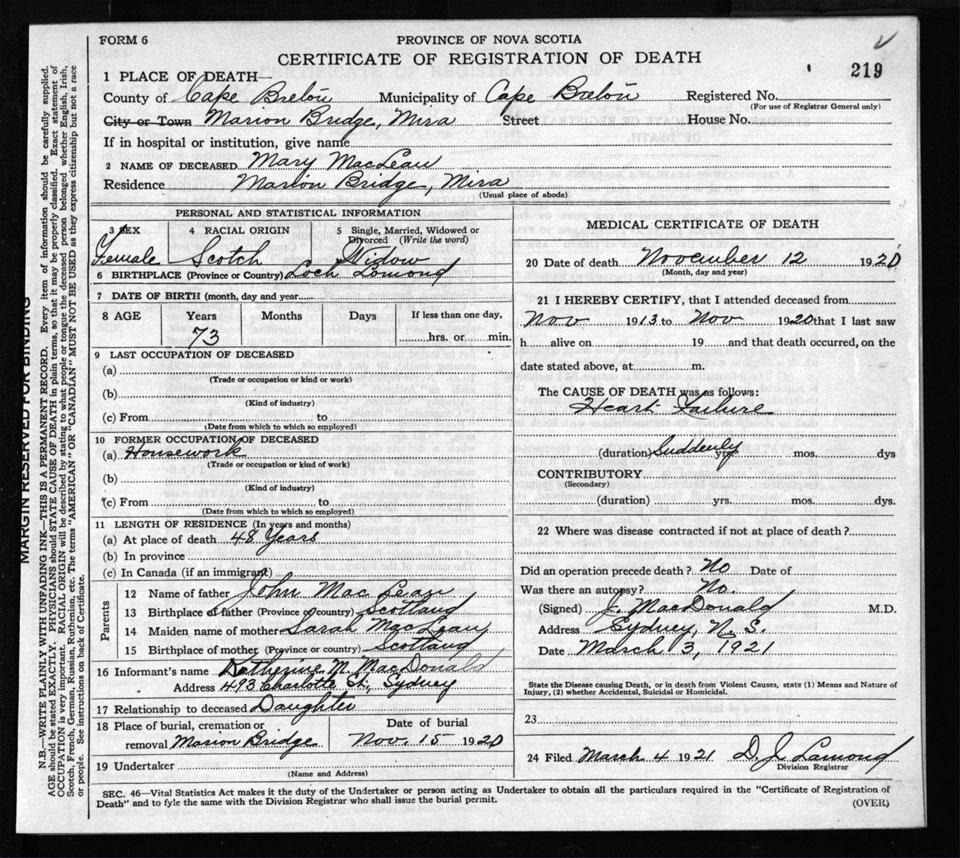 FORM 6
PROVINCE OF NOVA SCOTIA
CERTIFICATE OF REGISTRATION OF DEATH
219
1 PLACE OF DEATH—
County of Cape Breton Municipality of Cape Breton Registered No.
(For use of Registrar General only)
City or Town Marion Bridge, Mira Street House No.
If in hospital or institution, give name
2 NAME OF DECEASED Mary MacLean
Residence Marion Bridge, Mira
(Usual place of abode)
PERSONAL AND STATISTICAL INFORMATION
3 SEX 4 RACIAL ORIGIN 5 Single, Married, Widowed or Divorced (Write the word)
Female Scotch Widow
6 BIRTHPLACE (Province or Country) Loch Lomond
7 DATE OF BIRTH (month, day and year)
8 AGE Years Months Days If less than one day,
73 hrs. or min.
9 LAST OCCUPATION OF DECEASED
(a)
(Trade or occupation or kind or work)
(b)
(Kind of industry)
(c) From to
(Date from which to which so employed)
10 FORMER OCCUPATION OF DECEASED
(a) Housework
(Trade or occupation or kind of work)
(b)
(Kind of industry)
(c) From to
(Date from which to which so employed)
11 LENGTH OF RESIDENCE (In years and months)
(a) At place of death 48 Years
(b) In province
(c) In Canada (if an immigrant)
Parents
12 Name of father John MacLean
13 Birthplace of father (Province or country) Scotland
14 Maiden name of mother Sarah MacLean
15 Birthplace of mother (Province or country) Scotland
16 Informant's name Katherine M. MacDonald
Address 493 Charlotte St., Sydney
17 Relationship to deceased Daughter
18 Place of burial, cremation or Date of burial
removal Marion Bridge Nov. 15 1920
19 Undertaker
(Name and Address)
MEDICAL CERTIFICATE OF DEATH
20 Date of death November 12 1920
(Month, day and year)
21 I HEREBY CERTIFY, that I attended deceased from
Nov 1913 to Nov 1920 that I last saw
h alive on 19 and that death occurred, on the
date stated above, at m.
The CAUSE OF DEATH was as follows:
Heart Failure
(duration) Suddenly yrs. mos. dys
CONTRIBUTORY
(Secondary)
(duration) yrs. mos. dys.
22 Where was disease contracted if not at place of death?
Did an operation precede death? No Date of
Was there an autopsy? No.
(Signed) J. MacDonald M.D.
Address Sydney, N. S.
Date March 3, 1921
State the Disease causing Death, or in death from Violent Causes, state (1) Means and Nature of
Injury, (2) whether Accidental, Suicidal or Homicidal.
23
24 Filed March 4 1921 D. J. Lamond
Division Registrar
SEC. 46—Vital Statistics Act makes it the duty of the Undertaker or person acting as Undertaker to obtain all the particulars required in the "Certificate of Registration of
Death" and to fyle the same with the Division Registrar who shall issue the burial permit.
(OVER)
MARGIN RESERVED FOR BINDING
N.B.—WRITE PLAINLY WITH UNFADING INK—THIS IS A PERMANENT RECORD. Every item of information should be carefully supplied.
AGE should be stated EXACTLY. PHYSICIANS should STATE CAUSE OF DEATH in plain terms, so that it may be properly classified. Exact statement of
OCCUPATION is very important. RACIAL ORIGIN will be described by stating to what people or tongue the deceased person belonged whether English, Irish,
Scotch, French, German, Russian, Ruthenian, etc. The terms "AMERICAN" OR "CANADIAN" MUST NOT BE USED as they express citizenship but not a race
or people. See instructions on back of Certificate.